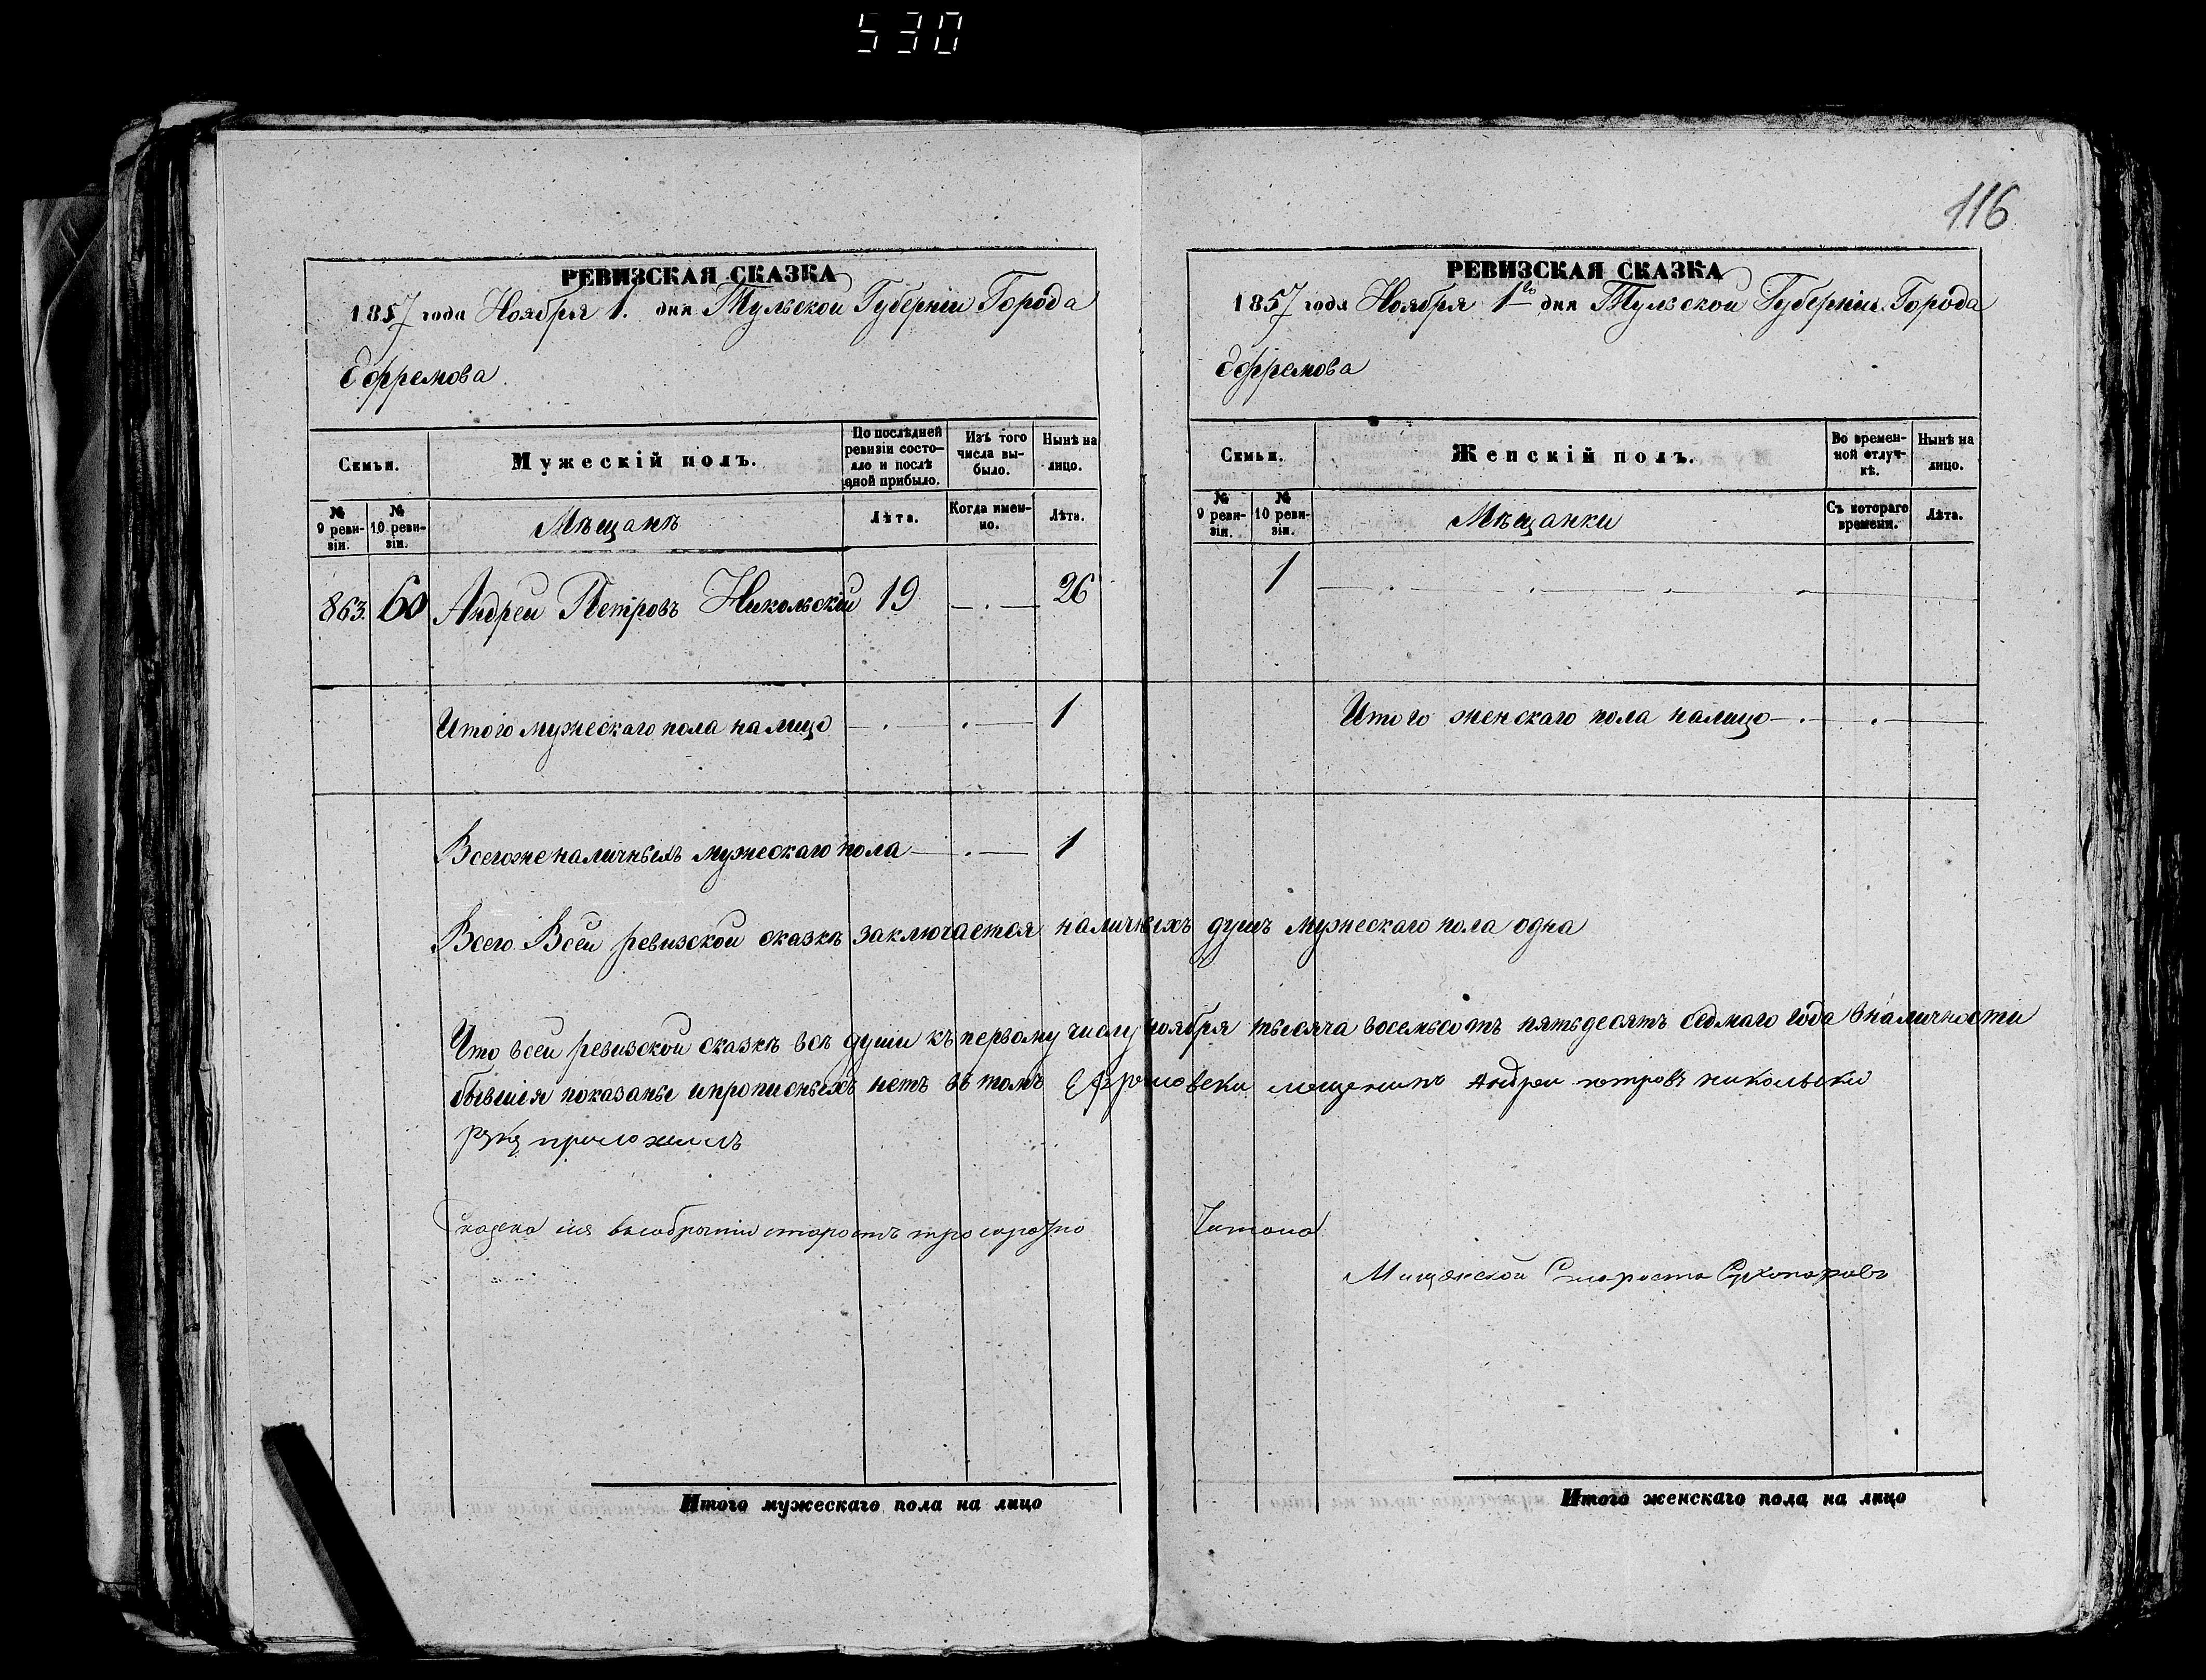 530
116
РЕВИЗСКАЯ СКАЗКА
1857 года Ноября 1. дня Тульской Губерніи Города
Ефремова.
Семьи.
Мужескій полъ.
По послѣдней ревизіи состояло и послѣ оной прибыло.
Изъ того числа выбыло.
Нынѣ на лицо.
№ 9 ревизіи.
№ 10 ревизіи.
Мѣщанъ
Лѣта.
Когда именно.
Лѣта.
863. 60 Андрей Петровъ Никольскій 19 26
Итого мужескаго пола на лицо 1
Всегоже наличныхъ мужескаго пола 1
РЕВИЗСКАЯ СКАЗКА
1857 года Ноября 1го дня Тульской Губерніи Города
Ефремова
Семьи.
Женскій полъ.
Во временной отлучкѣ.
Нынѣ на лицо.
№ 9 ревизіи.
№ 10 ревизіи.
Мѣщанки
Съ котораго времени.
Лѣта.
1
Итого женскаго пола налицо
Всего Всей ревизской сказкѣ заключается наличныхъ душъ мужескаго пола одна
Что всей ревизской сказкѣ всѣ души къ первому числу ноября тысяча восемьсотъ пятьдесятъ седмаго года вналичности
бывшія показаны ипрописныхъ нетъ въ томъ мещенинъ Андреи петровъ никольски
руку приложилъ
Сказка сія старостъ Читана
Староста
Итого мужескаго пола на лицо
Итого женскаго пола на лицо